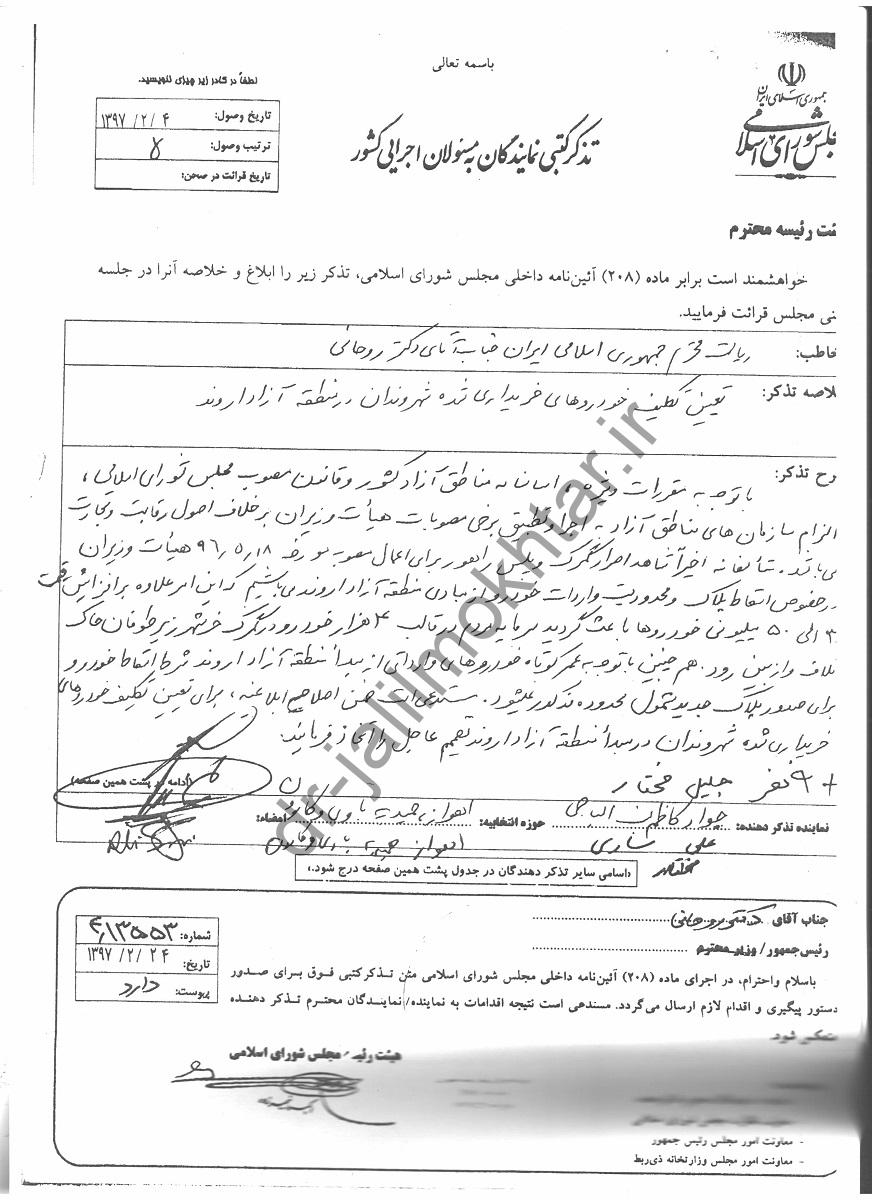 باسمه تعالی
جمهوری اسلامی ایران
مجلس شورای اسلامی
لطفاً در کادر زیر چیزی ننویسید.
تاریخ وصول: ۱۳۹۷/۲/۴
ترتیب وصول: ۸
تاریخ قرائت در صحن:
تذکر کتبی نمایندگان به مسئولان اجرایی کشور
ئت رئیسه محترم
خواهشمند است برابر ماده (۲۰۸) آئین‌نامه داخلی مجلس شورای اسلامی، تذکر زیر را ابلاغ و خلاصه آنرا در جلسه
نی مجلس قرائت فرمایید.
خاطب: ریاست محترم جمهوری اسلامی ایران جناب آقای دکتر روحانی
لاصه تذکر: تعیین تکلیف خودروهای خریداری شده شهروندان در منطقه آزاد اروند
رح تذکر: با توجه به مقررات ویژه، اساسنامه مناطق آزاد کشور و قانون مصوب مجلس شورای اسلامی،
الزام سازمان های مناطق آزاد به اجرا و تطبیق برخی مصوبات هیأت وزیران برخلاف اصول رقابت و تجارت
می باشد. متأسفانه اخیراً شاهد اصرار گمرک و پلیس راهور برای اعمال مصوبه مورخه ۹۶,۵,۱۸ هیأت وزیران
در خصوص اسقاط پلاک و محدودیت واردات خودرو از مبادی منطقه آزاد اروند می باشیم که این امر علاوه بر افزایش قیمت
۳۰ الی ۵۰ میلیونی خودروها باعث گردید سرمایه مردم در قالب ۴ هزار خودرو در گمرک خرمشهر زیر طوفان خاک
تلف و از بین رود. هم چنین با توجه به عمر کوتاه خودروهای وارداتی از مبدأ منطقه آزاد اروند شرط اسقاط خودرو
برای صدور پلاک جدید مشمول محدوده مذکور نمیشود. مستدعی است ضمن اصلاح ابلاغیه، برای تعیین تکلیف خودروهای
خریداری شده شهروندان در مبدأ منطقه آزاد اروند تصمیم عاجل را آغاز فرمائید.
+ ۹ نفر جلیل مختار
(ادامه در پشت همین صفحه)
نماینده تذکر دهنده: جواد کاظم نسب الباجی حوزه انتخابیه: اهواز، حمیدیه باوی و کارون امضاء:
علی ساری اهواز حمیدیه باوی و کارون
مختار
(اسامی سایر تذکر دهندگان در جدول پشت همین صفحه درج شود.)
جناب آقای دکتر روحانی
رئیس‌جمهور / وزیر محترم
شماره: ۴۱۳۵۵۳
تاریخ: ۱۳۹۷/۲/۲۴
پیوست: دارد
باسلام واحترام، در اجرای ماده (۲۰۸) آئین‌نامه داخلی مجلس شورای اسلامی متن تذکر کتبی فوق برای صدور
دستور پیگیری و اقدام لازم ارسال می‌گردد. مستدعی است نتیجه اقدامات به نماینده/ نمایندگان محترم تذکر دهنده
منعکس شود.
هیئت رئیسه مجلس شورای اسلامی
- معاونت امور مجلس رئیس جمهور
- معاونت امور مجلس وزارتخانه ذی‌ربط
dr-jalilmokhtar.ir